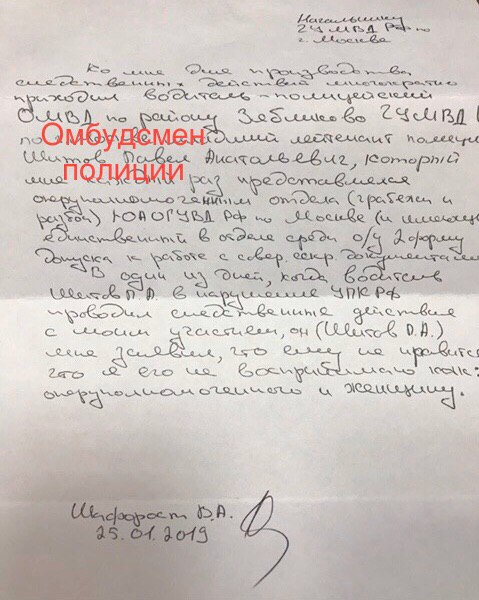 Начальнику
ГУ МВД РФ по
г. Москве
Ко мне для производства
следственных действий многократно
приходил водитель-полицейский
ОМВД по району Зябликово ГУМВД
Омбудсмен
полиции
младший лейтенант полиции
Шитов Павел Анатольевич, который
мне каждый раз представлялся
оперуполномоченным отдела (грабежи и
разбои) ЮАО ГУВД РФ по Москве (и имеющ
единственный в отделе среди о/у 2 форму
допуска к работе с совер. секр. документами
В один из дней, когда водитель
Шитов П.А. в нарушение УПК РФ
проводил следственные действия
с моим участием, он (Шитов П.А.)
мне заявил, что ему не нравится
что я его не воспринимаю как:
оперуполномоченного и женщину.
Шафорост В.А.
25.01.2019